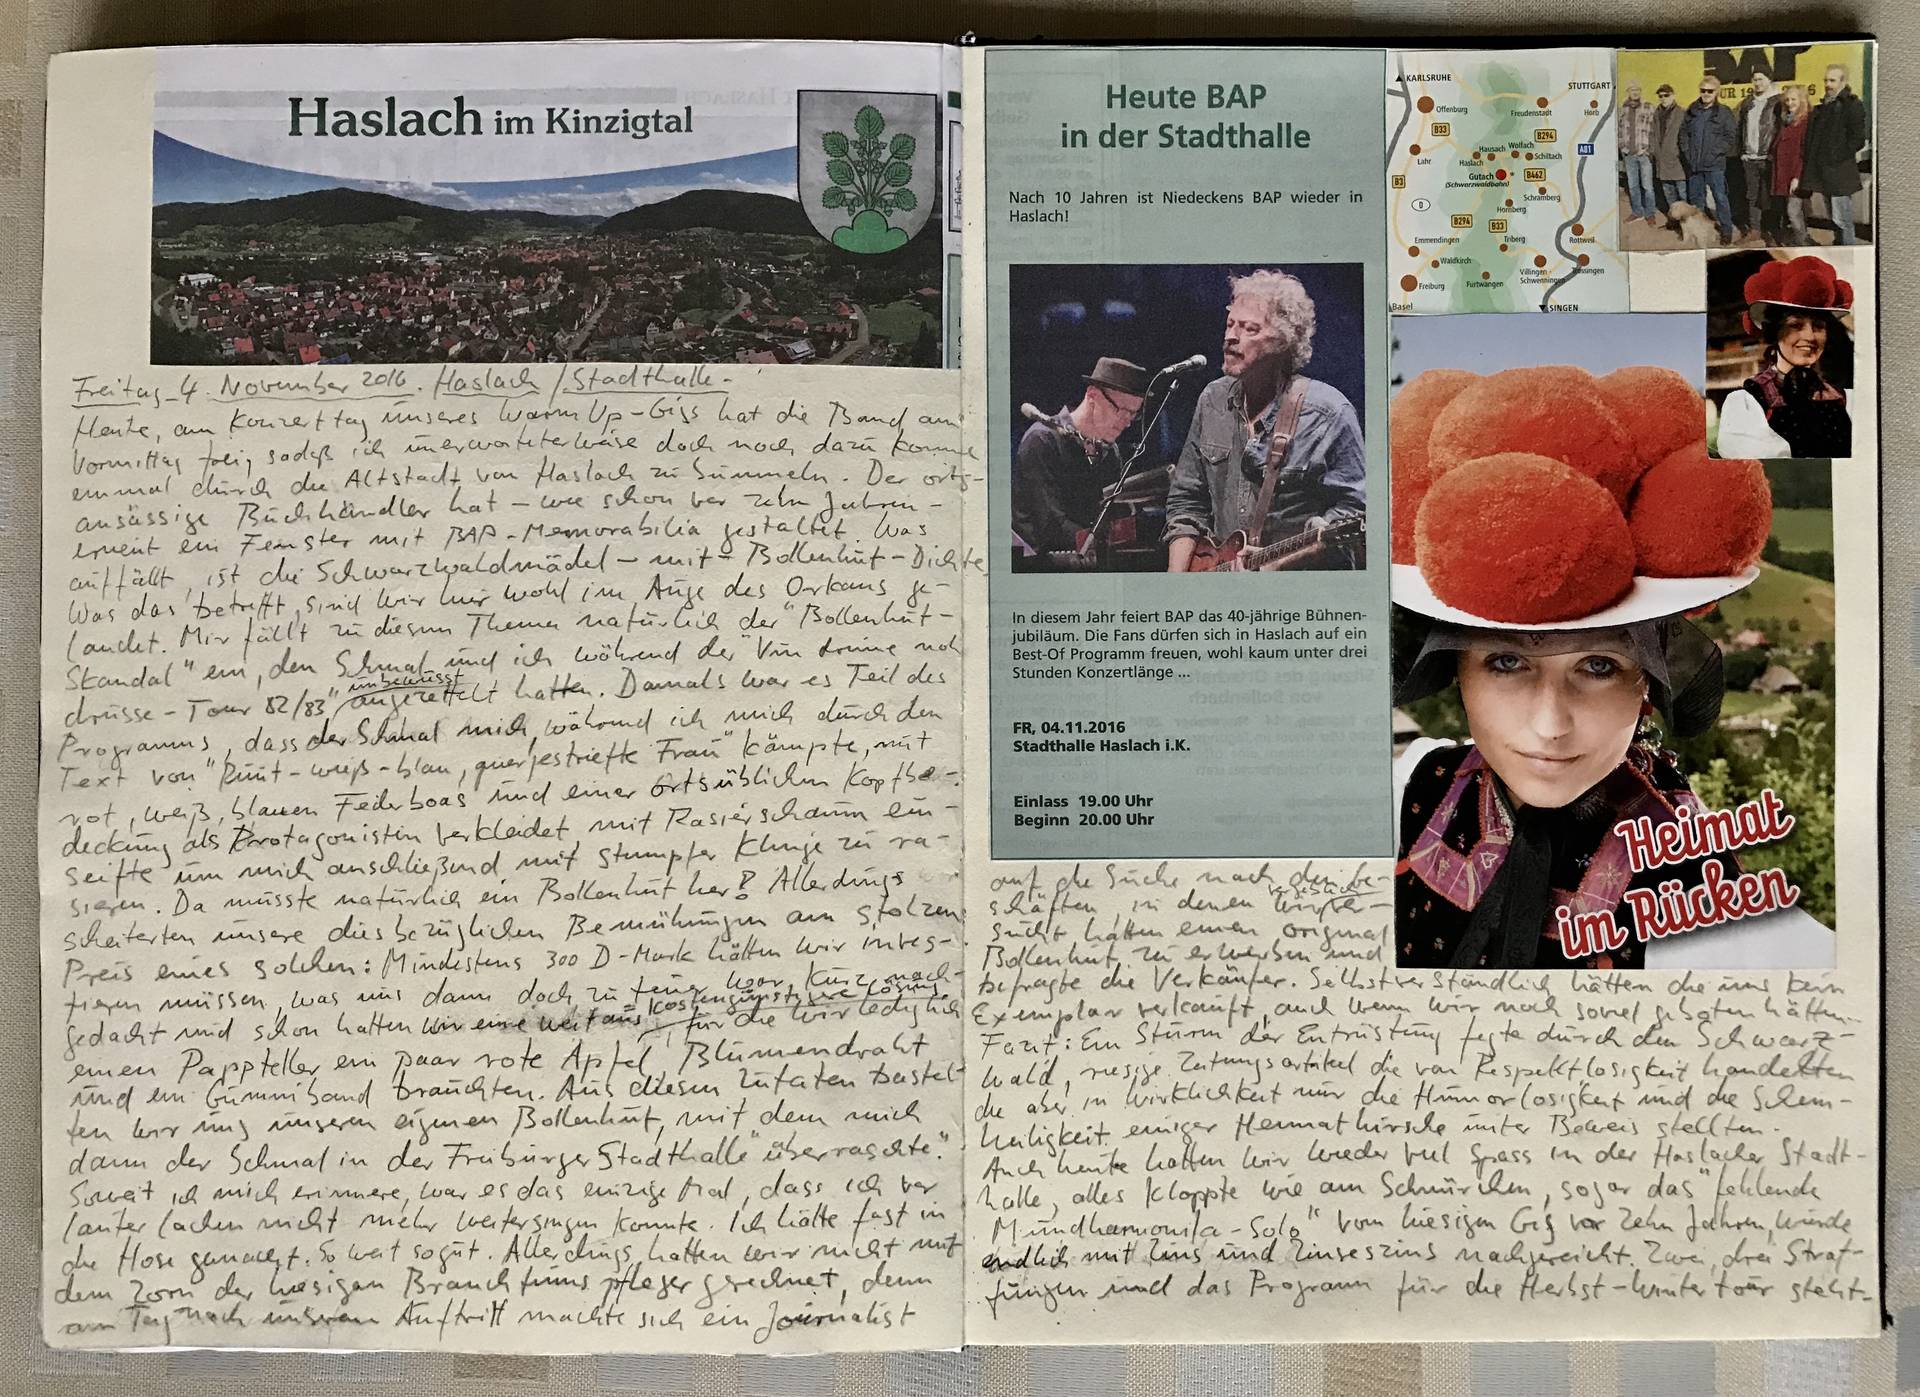 Haslach im Kinzigtal
Freitag 4. November 2016. Haslach / Stadthalle -
Heute, am Konzerttag unseres WarmUp-Gigs hat die Band am
Vormittag frei, sodaß ich unerwarteterweise doch noch dazu komme
einmal durch die Altstadt von Haslach zu bummeln. Der orts-
ansässige Buchhändler hat - wie schon vor zehn Jahren -
erneut ein Fenster mit BAP-Memorabilia gestaltet. Was
auffällt, ist die Schwarzwaldmädel-mit-Bollenhut-Dichte
Was das betrifft, sind wir hier wohl im Auge des Orkans ge-
landet. Mir fällt zu diesem Thema natürlich der "Bollenhut-
Skandal" ein, den Schmal und ich während der "Vun drinne noh
drusse-Tour 82/83" unbewusst angezettelt hatten. Damals war es Teil des
Programms, dass der Schmal mich, während ich mich durch den
Text von "Ruut-wieß-blau, quergestriefte Frau" kämpte, mit
rot, weiß, blauen Federboas und einer ortsüblichen Kopfbe-
deckung als Protagonistin verkleidet mit Rasierschaum ein-
seifte um mich anschließend mit stumpfer Klinge zu ra-
sieren. Da musste natürlich ein Bollenhut her! Allerdings
scheiterten unsere diesbezüglichen Bemühungen am stolzen
Preis eines solchen: Mindestens 300 D-Mark hätten wir inves-
tieren müssen, was uns dann doch zu teuer war. Kurz nach-
gedacht und schon hatten wir eine weitaus kostengünstigere Lösung, für die wir lediglich
einen Pappteller ein paar rote Äpfel, Blumendraht
und ein Gummiband brauchten. Aus diesen Zutaten bastel-
ten wir uns unseren eigenen Bollenhut, mit dem mich
dann der Schmal in der Freiburger Stadthalle "überraschte."
Soweit ich mich erinnere, war es das einzige Mal, dass ich vor
lauter lachen nicht mehr weitersingen konnte. Ich hätte fast in
die Hose gemacht. So weit so gut. Allerdings hatten wir nicht mit
dem Zorn der hiesigen Brauchtumspfleger gerechnet, denn
am Tag nach unserem Auftritt machte sich ein Journalist
Heute BAP
in der Stadthalle
Nach 10 Jahren ist Niedeckens BAP wieder in
Haslach!
In diesem Jahr feiert BAP das 40-jährige Bühnen-
jubiläum. Die Fans dürfen sich in Haslach auf ein
Best-Of Programm freuen, wohl kaum unter drei
Stunden Konzertlänge ...
FR, 04.11.2016
Stadthalle Haslach i.K.
Einlass 19.00 Uhr
Beginn 20.00 Uhr
KARLSRUHE
STUTTGART
Offenburg
Freudenstadt
Horb
B33
B294
A81
Lahr
Hausach
Wolfach
Haslach
Schiltach
B3
Gutach
(Schwarzwaldbahn)
B462
D
Schramberg
Hornberg
B294
B33
Emmendingen
Triberg
Rottweil
Waldkirch
Villingen-
Schwenningen
Trossingen
Freiburg
Furtwangen
Basel
SINGEN
BAP
Heimat
im Rücken
auf die Suche nach den Ge-
schäften, in denen wir vergeblich ver-
sucht hatten einen original
Bollenhut zu erwerben und
befragte die Verkäufer. Selbstverständlich hätten die uns kein
Exemplar verkauft, auch wenn wir noch soviel geboten hätten.
Fazit: Ein Sturm der Entrüstung fegte durch den Schwarz-
wald, riesige Zeitungsartikel die von Respektlosigkeit handelten
die aber in Wirklichkeit nur die Humorlosigkeit und die Schein-
heiligkeit einiger Heimathirsche unter Beweis stellten.
Auch heute hatten wir wieder viel Spass in der Haslacher Stadt-
halle, alles kloppte wie am Schnürchen, sogar das "fehlende
Mundharmonika-Solo" vom hiesigen Gig vor zehn Jahren, wurde
endlich mit Zins und Zinseszins nachgereicht. Zwei, drei Straf-
fungen und das Programm für die Herbst-Wintertour steht.